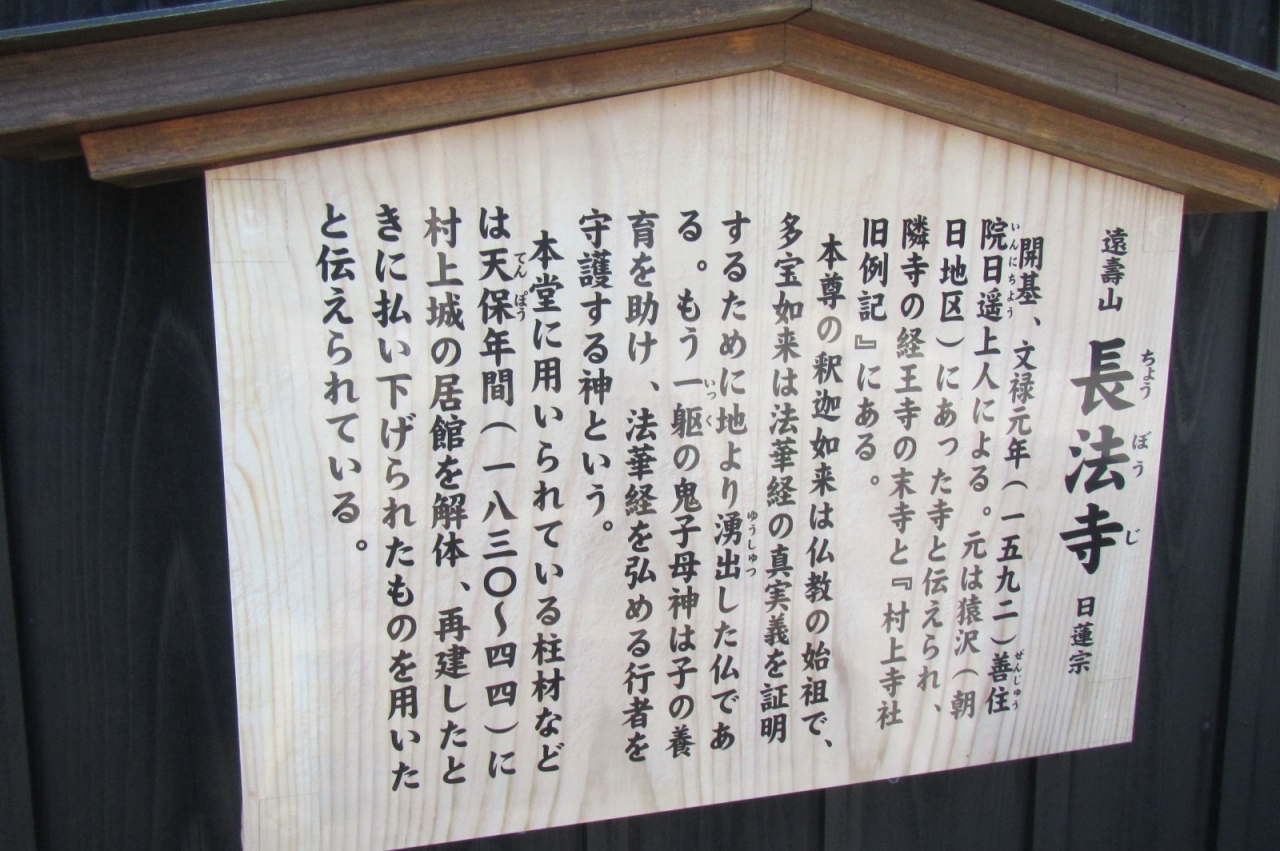 遠壽山 長法寺 日蓮宗
ちょうぼうじ
開基、文禄元年(一五九二)善住
ぜんじゅう
院日遥上人による。元は猿沢(朝
いんにちよう
日地区)にあった寺と伝えられ、
隣寺の経王寺の末寺と『村上寺社
旧例記』にある。
本尊の釈迦如来は仏教の始祖で、
多宝如来は法華経の真実義を証明
するために地より湧出した仏であ
ゆうしゅつ
る。もう一躯の鬼子母神は子の養
いっく
育を助け、法華経を弘める行者を
守護する神という。
本堂に用いられている柱材など
は天保年間(一八三〇〜四四)に
てんぽう
村上城の居館を解体、再建したと
きに払い下げられたものを用いた
と伝えられている。